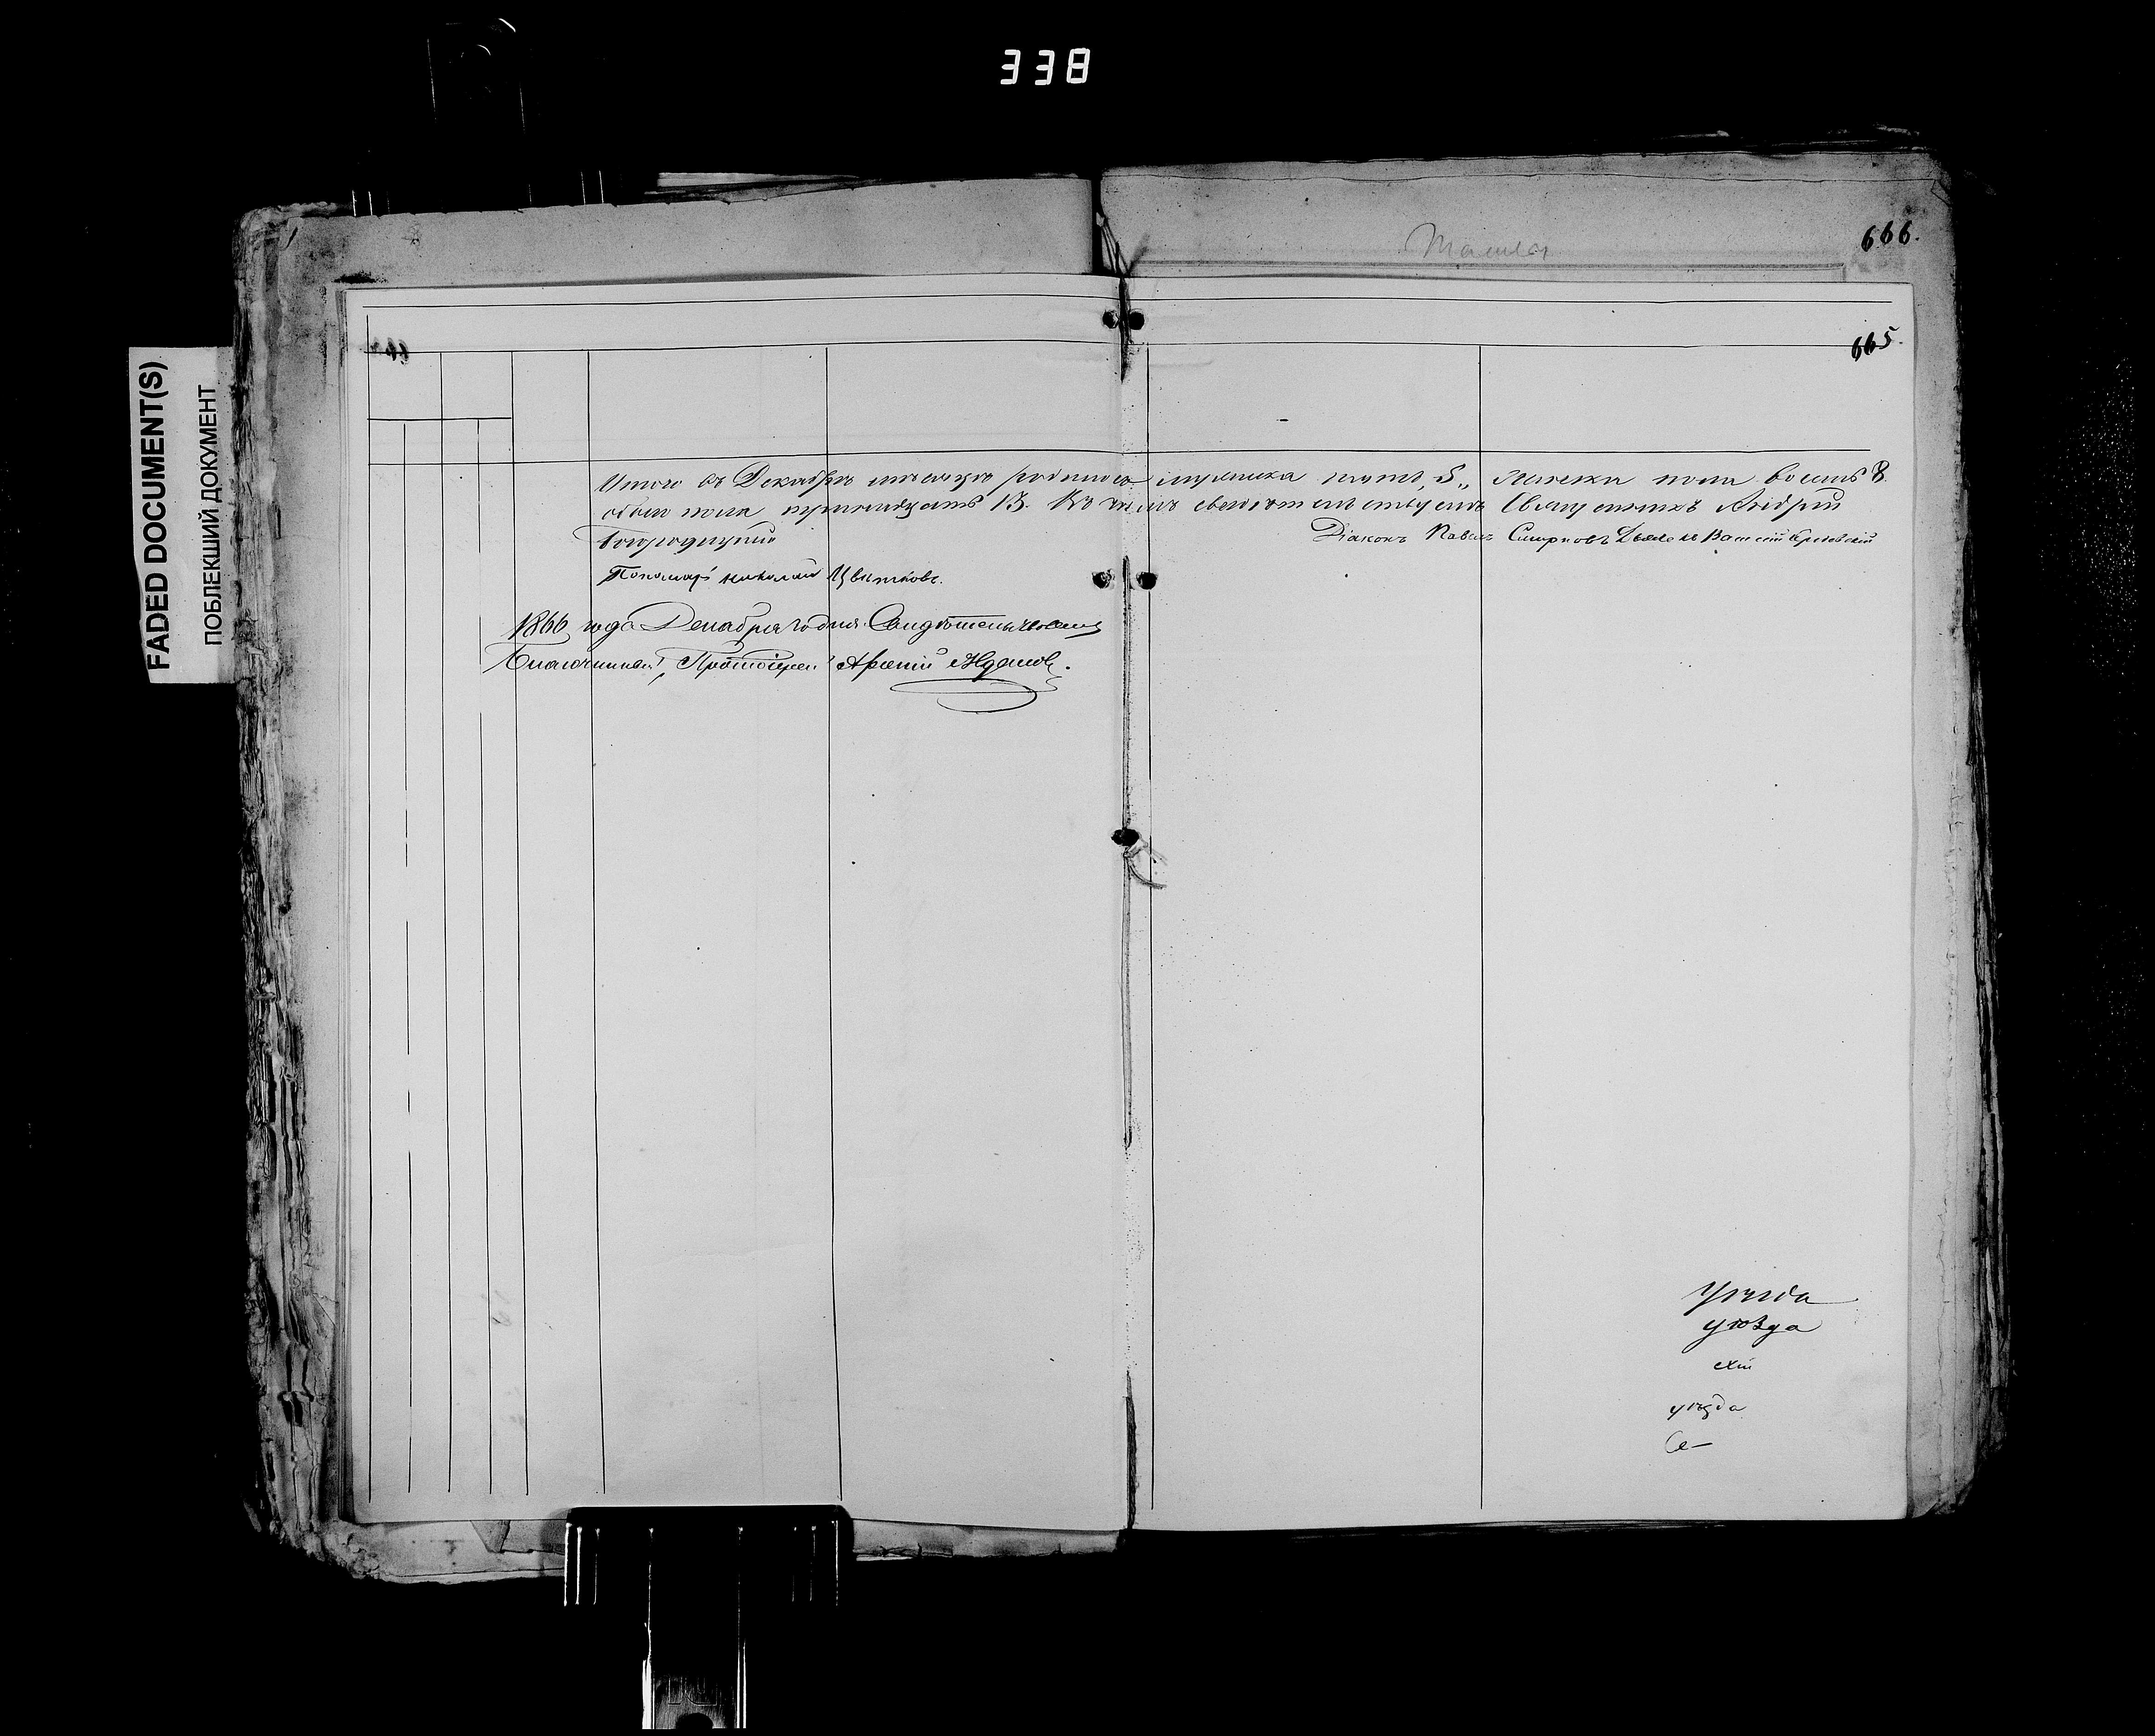 338
FADED DOCUMENT(S)
ПОБЛЕКШИЙ ДОКУМЕНТ
666.
665.
Итого въ Декабрѣ мѣсяцѣ родилось мужска пять 5, Женска пола восемь 8.
обоего пола тринадцать 13. Къ чему свидѣтельствуемъ Священникъ Андрей
Богородицкій
Діаконъ Павелъ Смирновъ
Пономарь Николай Цвѣтковъ.
1866 года Декабря дня Свидѣтельствовалъ
Благочинный, Протоіерей Арсеній
уѣзда
уѣзда
уѣзда
Се-